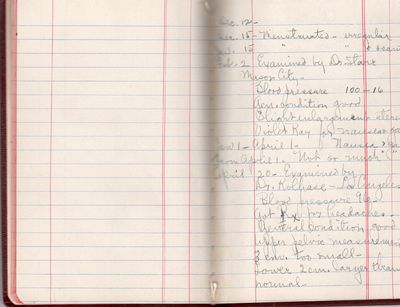 Dec. 12-
Dec. 15- Menstruated - irregular
Jan. 15 " " & scan
Feb. 2 Examined by Dr. Starr
Mason City-
Blood pressure 100-16
Gen. condition good
Slight enlargement uteru
Violet Ray for nausea
Jan 1 - April 1 - Nausea
From April 1 - Not so much "
April 20 - Examined by
Dr. Kolhase - Los Angeles
Blood pressure 96
Got Rx for headaches.
General condition good
upper pelvic measuremen
2 cm. too small-
Lower 2 cm. larger than
normal-